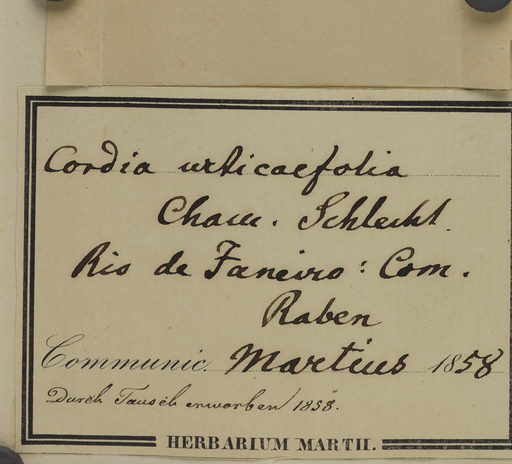 Cordia urticaefolia
Cham. Schlecht.
Rio de Janeiro: Com.
Raben
Communic. Martius 1858
Durch Tausch erworben 1858.
HERBARIUM MARTII.